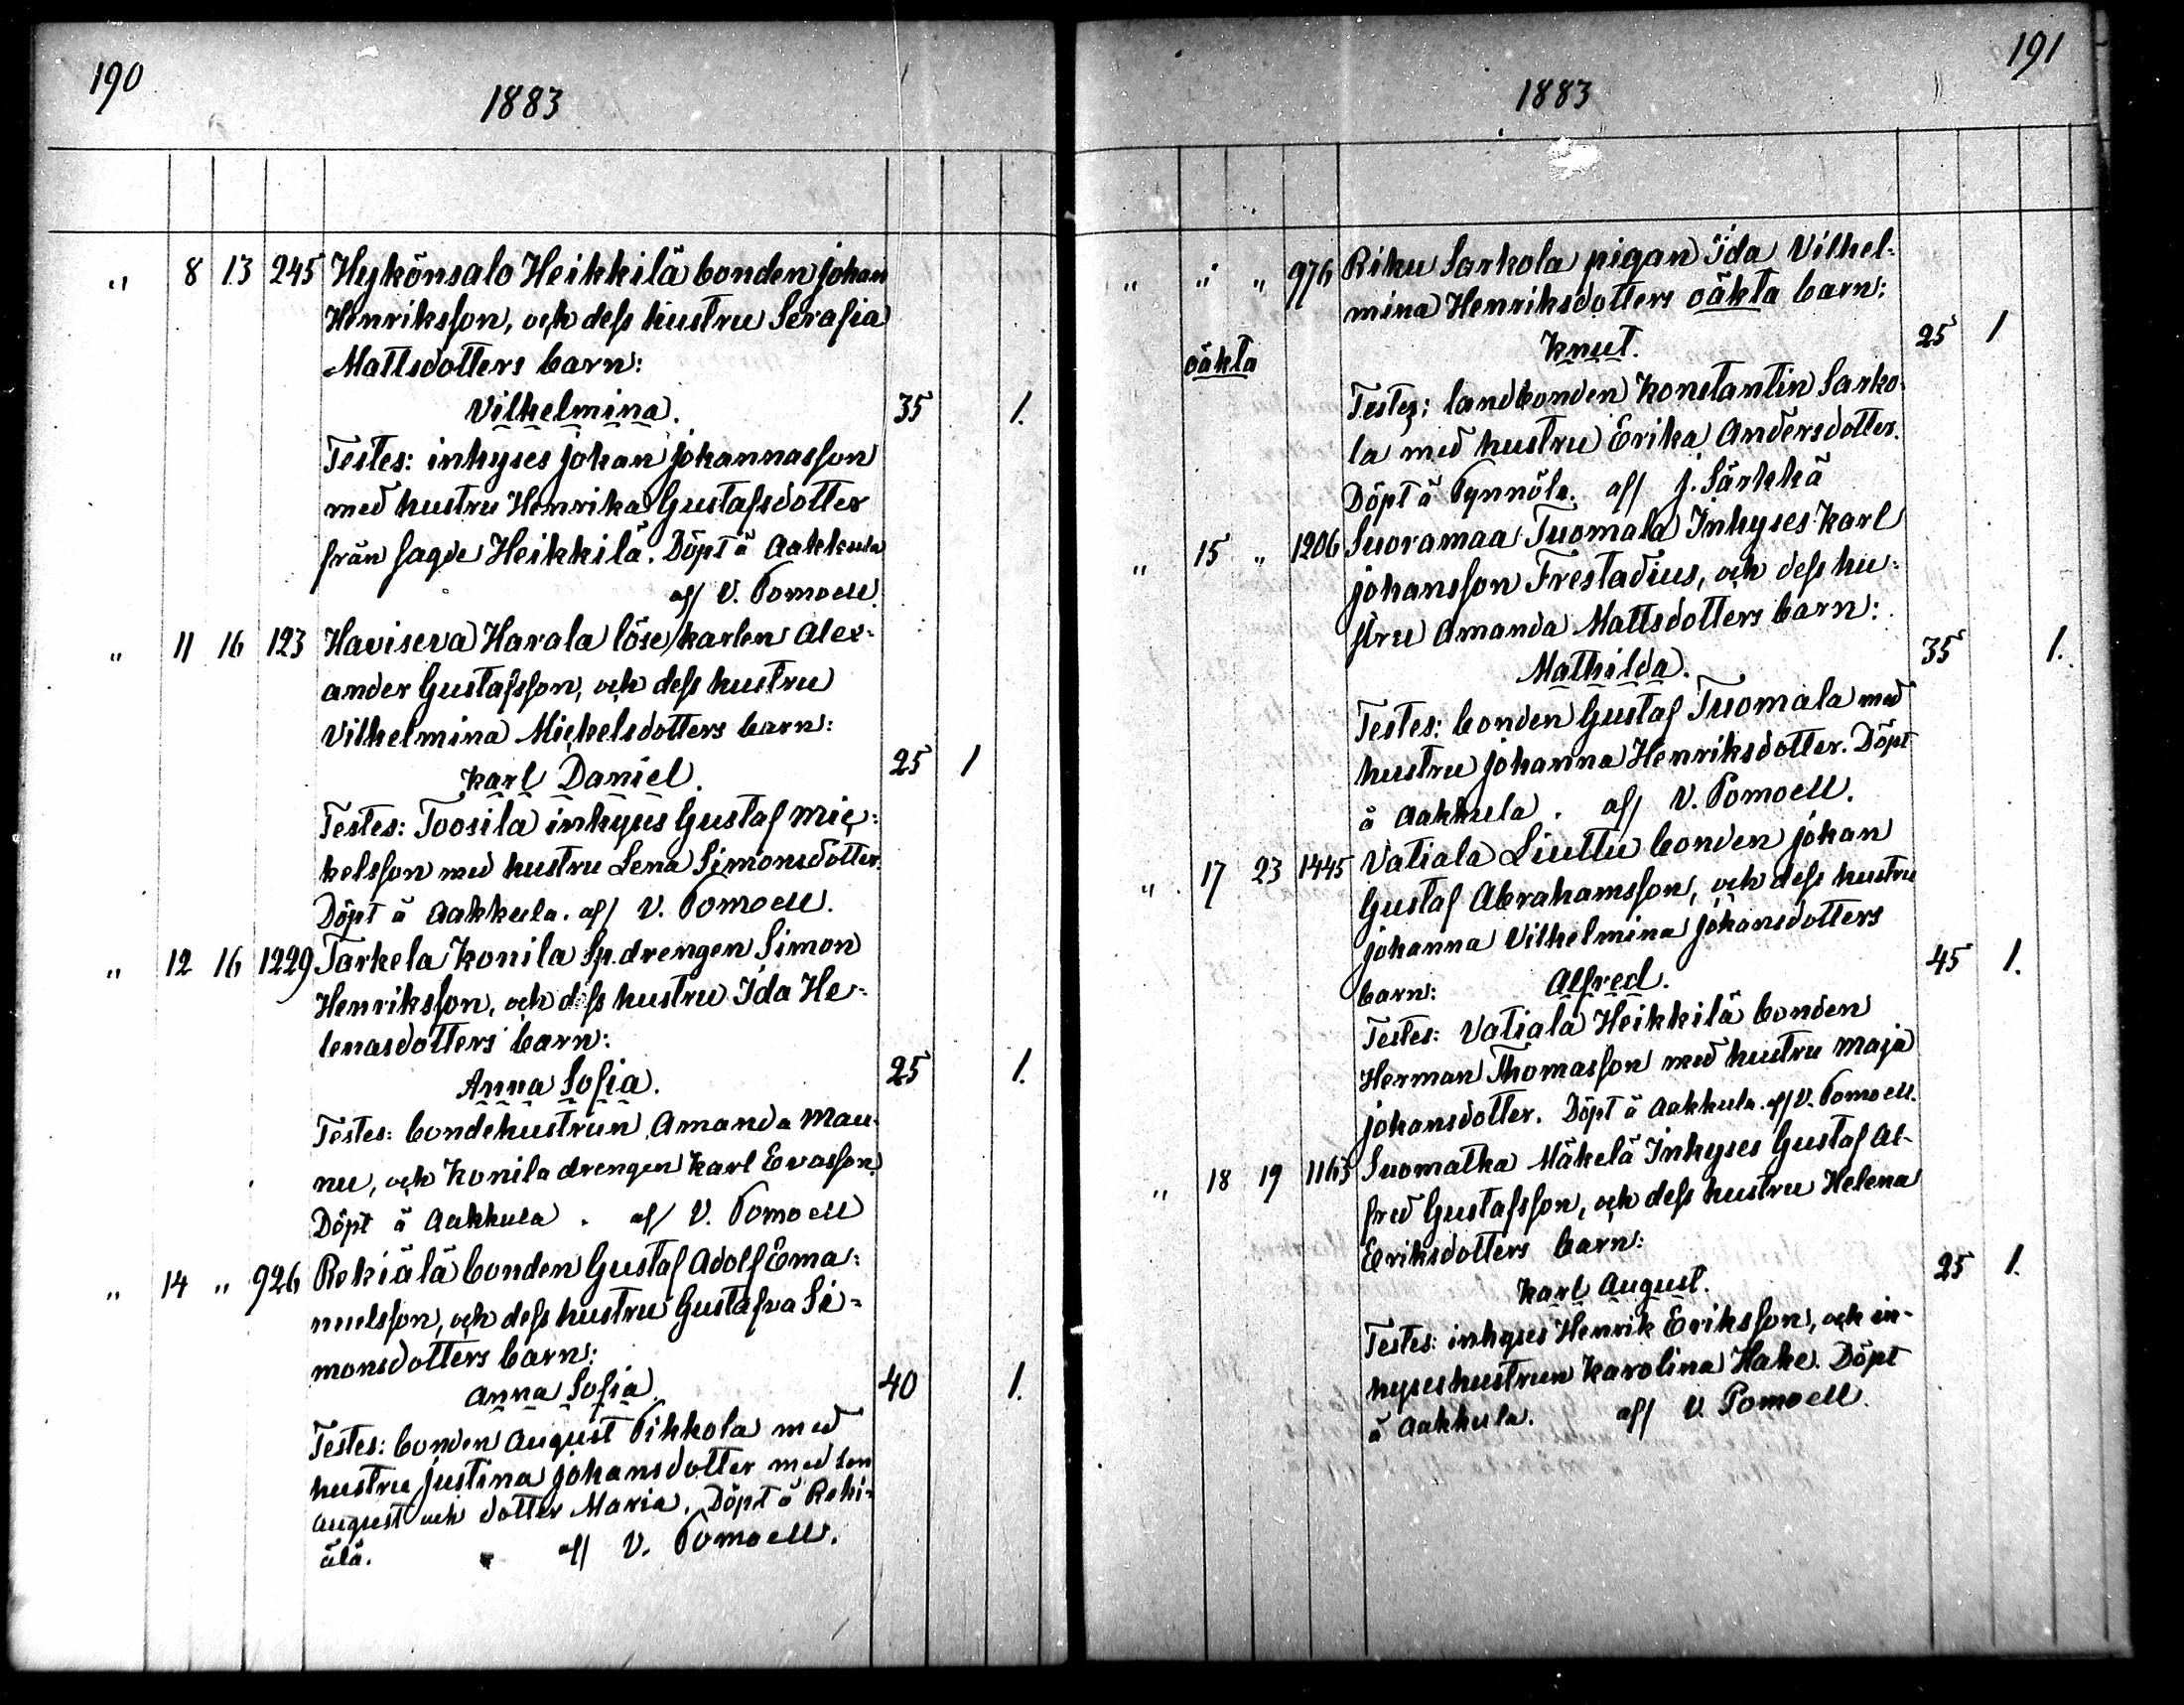 190
1883
" 8 13 245 Hykönsalo Heikkilä bonden Johan
Henriksson, och dess hustru Serafia
Mattsdotters barn:
Vilhelmina. 35 1.
Testes: inhyses Johan Johannasson
med hustru Henrika Gustafsdotter
från sagde Heikkilä. Döpt å Aakkula
af V. Pomoell.
" 11 16 123 Havisева Harala löse karlen Alex-
ander Gustafsson, och dess hustru
Vilhelmina Mickelsdotters barn:
Karl Daniel. 25 1
Testes: Toosila inhyses Gustaf Mic-
kelsson med hustru Lena Simonsdotter.
Döpt å Aakkula. af V. Pomoell.
" 12 16 1229 Tarkela Konila Sp. drengen Simon
Henriksson, och dess hustru Ida He-
lenasdotters barn:
Anna Sofia. 25 1.
Testes: bondehustrun Amanda Mau-
nu, och Konila drengen Karl Evasson.
Döpt å Aakkula. af V. Pomoell
" 14 " 926 Rekiälä bonden Gustaf Adolf Ema-
nuelsson, och dess hustru Gustafva Si-
monsdotters barn:
Anna Sofia. 40 1.
Testes: bonden August Pikkola med
hustru Justina Johansdotter med son
August och dotter Maria. Döpt å Reki-
älä. af V. Pomoell.
191
1883
" " " 976 Riku Sarkola pigan Ida Vilhel-
mina Henriksdotters oäkta barn:
oäkta Knut. 25 1
Testes: landbonden Konstantin Sarko-
la med hustru Erika Andersdotter.
Döpt å Pynnölä. af J. Särkkä
" 15 " 1206 Suoramaa Tuomala Inhyses Karl
Johansson Frestadius, och dess hu-
stru Amanda Mattsdotters barn:
Mathilda. 35 1.
Testes: bonden Gustaf Tuomala med
hustru Johanna Henriksdotter. Döpt
å Aakkula. af V. Pomoell.
" 17 23 1445 Vatiala Liuttu bonden Johan
Gustaf Abrahamsson, och dess hustru
Johanna Vilhelmina Johansdotters
barn: Alfred. 45 1.
Testes: Vatiala Heikkilä bonden
Herman Thomasson med hustru Maja
Johansdotter. Döpt å Aakkula. af V. Pomoell.
" 18 19 1163 Suomatka Mäkelä Inhyses Gustaf Al-
fred Gustafsson, och dess hustru Helena
Eriksdotters barn:
Karl August. 25 1.
Testes: inhyses Henrik Eriksson, och in-
hyseshustrun Karolina Hake. Döpt
å Aakkula. af V. Pomoell.